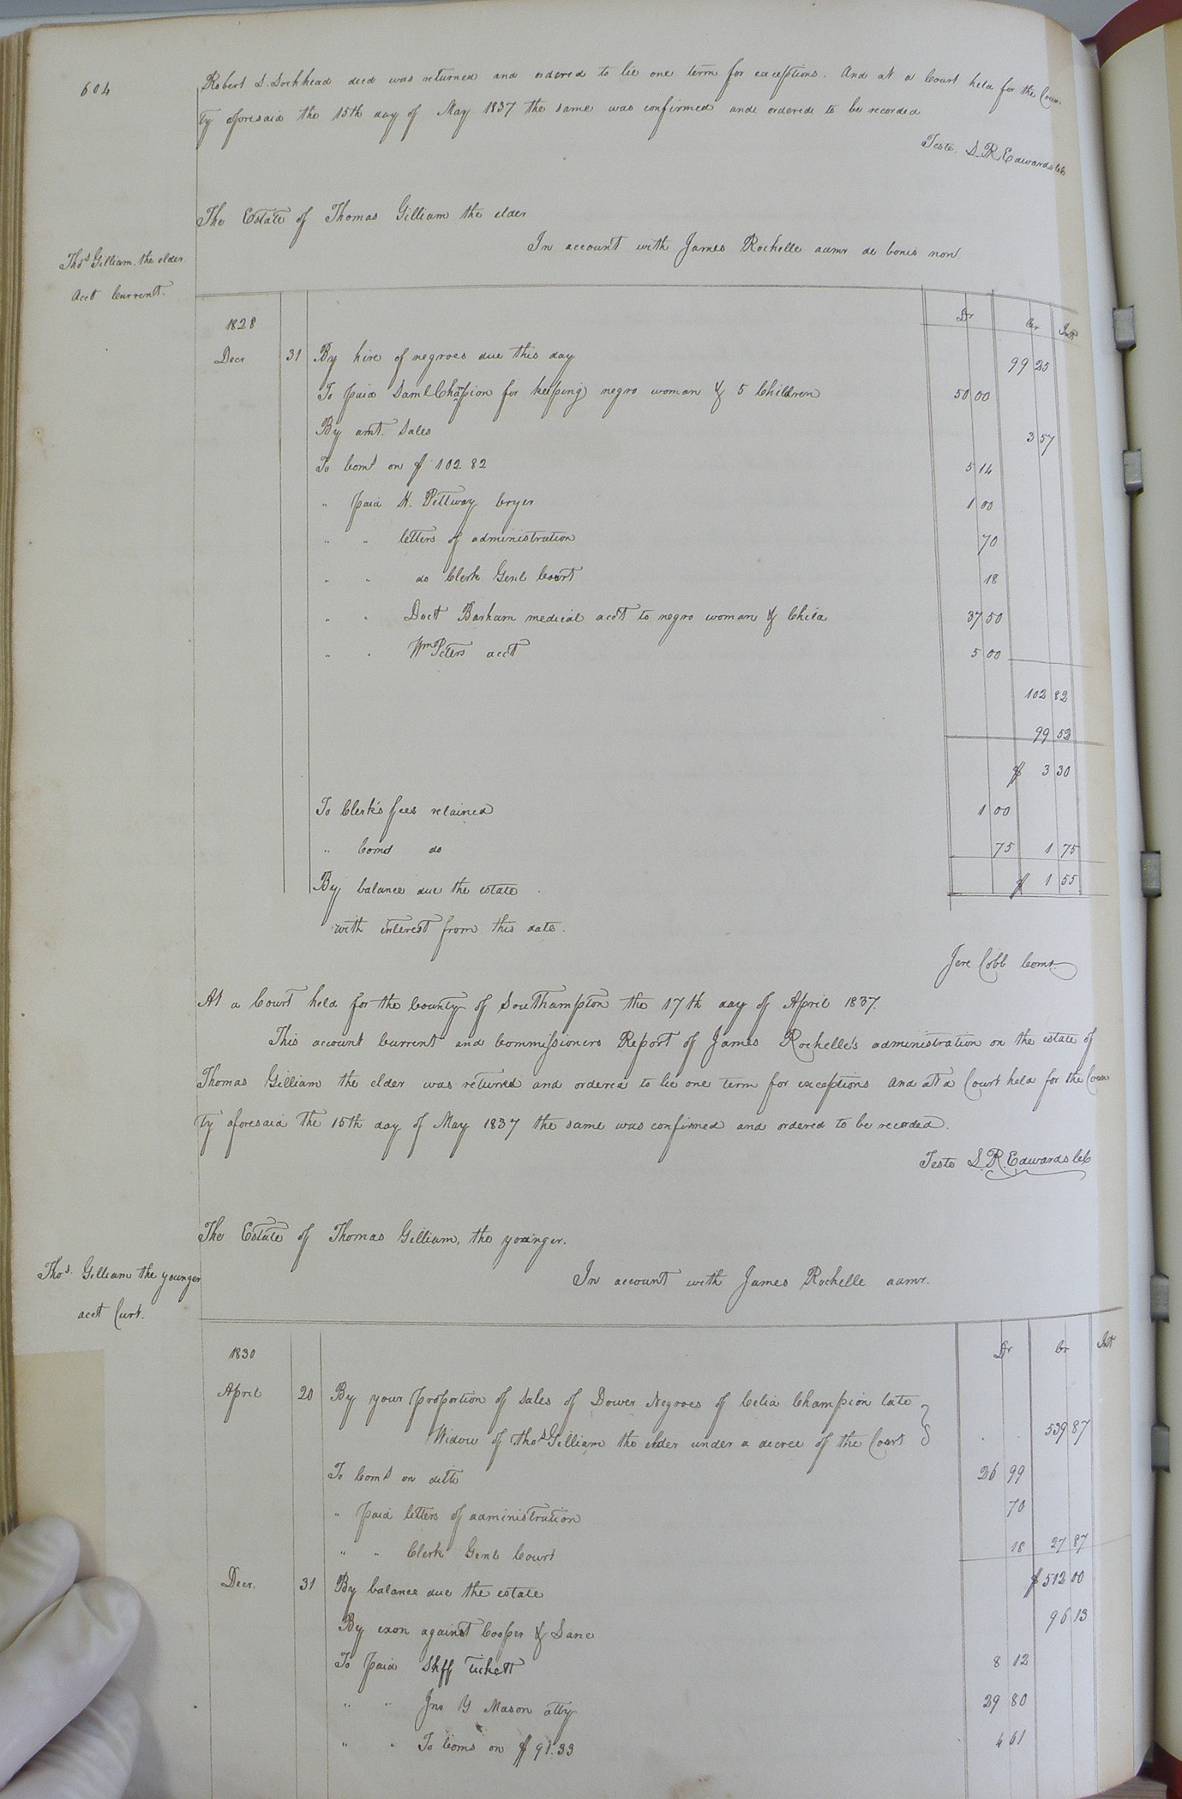 604
Robert S. Lochhead decd was returned and ordered to lie one term for exceptions. And at a Court held for the Coun-
ty aforesaid the 15th day of May 1837 the same was confirmed and ordered to be recorded
Teste. S. R. Edwards
The Estate of Thomas Gilliam the elder
In account with James Rochelle admr de bonis non
Thos Gilliam, the elder
Acct Current.
Dr Cr Int
1828
Decr 31 By hire of negroes due this day 99 25
To paid Saml Champion for keeping negro woman & 5 Children 50 00
By amt. Sales 3 57
To Coms on $102.82 5 14
" paid H. Pettway Cryer 1 00
" " letters of administration 70
" " do Clerk Genl Court 18
" " Doct Barham medical acct to negro woman & Child 37 50
" " Wm Peters acct 5 00
102 82
99 52
$ 3 30
To Clerk's fees retained 1 00
" Comd do 75 1 75
By balance due the estate $ 1 55
with interest from this date.
Jere Cobb Comr.
At a Court held for the County of Southampton the 17th day of April 1837.
This account Current and Commissioners Report of James Rochelle's administration on the estate of
Thomas Gilliam the elder was returned and ordered to lie one term for exceptions and at a Court held for the Coun
ty aforesaid the 15th day of May 1837 the same was confirmed and ordered to be recorded.
Teste S. R. Edwards
The Estate of Thomas Gilliam, the younger.
In account with James Rochelle admr.
Thos. Gilliam the younger
acct Curt.
Dr Cr Int
1830
April 20 By your proportion of Sales of Dower Negroes of Celia Champion late
Widow of Thos Gilliam the elder under a decree of the Court 539 87
To Coms on ditto 26 99
" paid letters of administration 70
" " Clerk Genl Court 18 27 87
Decr. 31 By balance due the estate $512 00
By exon against Cooper & Lane 96 13
To paid Shff Tickett 8 12
" " Jno Y Mason atty 29 80
" " To Coms on $91.33 4 61